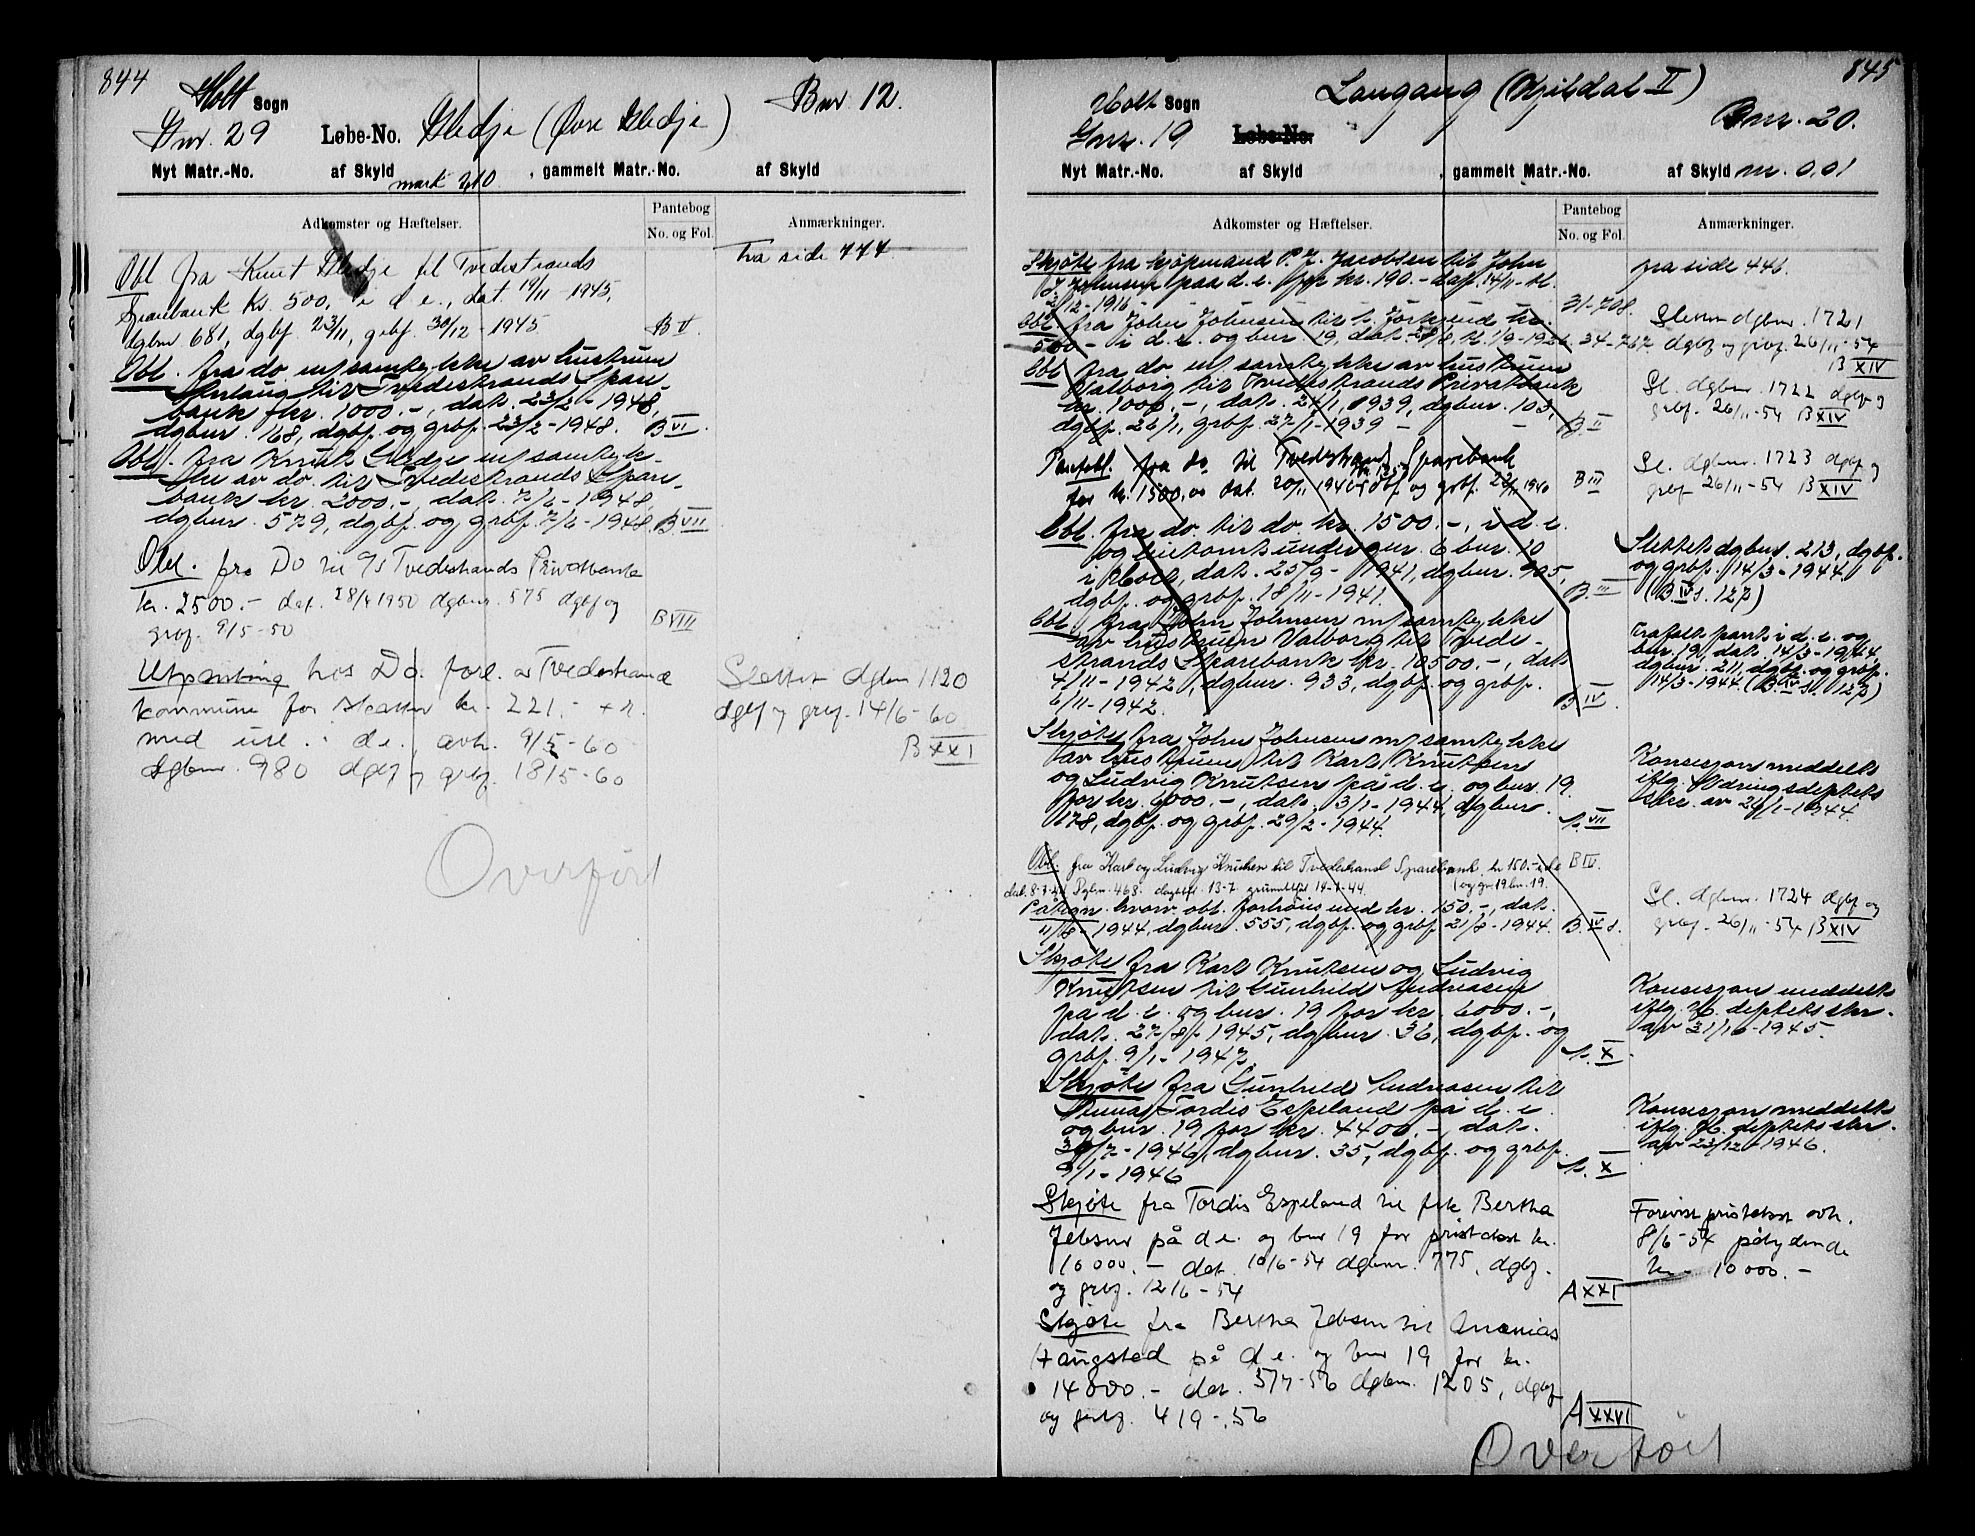 844
Holt Sogn
Bnr. 12.
Gnr. 29 Løbe-No. Gledje (Øvre Gledje)
Nyt Matr.-No. af Skyld mark 2,10, gammelt Matr.-No. af Skyld
Adkomster og Hæftelser.
Pantebog
No. og Fol.
Anmærkninger.
Fra side 444
Obl fra Knut Gledje til Tvedestrands
Sparebank kr 500, i d e., dat 19/11-1945,
dgbnr 681, dgbf. 23/11, grbf. 30/12-1945 B V
Obl. fra do. m/samtykke av hustruen
til Tvedestrands Spare-
bank fkr. 1000.-, dat. 23/2-1948,
dgbnr. 168, dgbf. og grbf. 23/2-1948. B VI.
Obl. fra Knut Gledje m/samtyk-
ke av do. til Tvedestrands Spare-
bank kr. 2000.-, dat. 7/6-1948,
dgbnr. 579, dgbf. og grbf. 7/6-1948. B VII
Obl. fra Do til A/S Tvedestrands Privatbank
kr. 2500.- dat. 28/4 1950 dgbnr. 575 dgbf og
grbf. 9/5-50 B VIII
Utpanting hos Do. forl. av Tvedestrand
kommune for skatter kr. 221.- + r.
med utl. i d e., avh. 9/5-60
dgbnr. 980 dgbf og grbf. 18/5-60
Slettet dgbnr 1120
dgbf og grbf. 14/6-60
B XXI
Overført
845
Holt Sogn
Langang (Kjildal II)
Gnr. 19 Løbe-No.
Bnr. 20.
Nyt Matr.-No. af Skyld , gammelt Matr.-No. af Skyld m. 0,01
Adkomster og Hæftelser.
Pantebog
No. og Fol.
Anmærkninger.
Skjøte fra kjøpmand P. Z. Jacobsen til John
J. Johnsen paa d. e. for kr. 190.- dat. 14/11- tl.
2/12-1916 31-708.
fra side 446.
Obl. fra John Johnsen til kr.
500.- i d. e. og bnr. 19, dat. 28/8, tl. 1/9-1926. 34-767
Slettet dgbnr. 1721
dgbf og grbf. 26/11-54
B XIV
Obl. fra do. m/samtykke av hustruen
Valborg til Tvedestrands Privatbank
kr. 1000.-, dat. 24/1, 1939, dgbnr. 103,
dgbf. 26/1, grbf. 27/1-1939 B. II
Sl. dgbnr. 1722 dgbf og
grbf. 26/11-54 B XIV
Panteobl. fra do til Tvedestrand Sparebank
for kr. 1500,00 dat. 20/11 1940 dgbf og grbf. 22/11 1940 B III
Sl. dgbnr. 1723 dgbf og
grbf 26/11-54 B XIV
Obl. fra do. til do kr. 1500.-, i d. e.
og bekomst under gnr. 6 bnr. 10
i Holt, dat. 25/9-1941, dgbnr. 905,
dgbf. og grbf. 18/11-1941. B. III
Slettet dgbnr. 213, dgbf.
og grbf. 14/3-1944
(B IV s. 127)
Obl. fra John Johnsen m/samtykke
av hustruen Valborg til Tvede-
strands Sparebank kr. 10500.-, dat.
4/11-1942, dgbnr. 933, dgbf. og grbf.
6/11-1942. B. IV.
Frafalt pant i d. e. og
bnr. 19, dat. 14/3-1944
dgbnr. 211, dgbf. og grbf.
14/3-1944. (B IV s. 127)
Skjøte fra John Johnsen m/samtykke
av hustruen til Karl Knutsen
og Ludvig Knutsen på d. e. og bnr. 19.
for kr. 6000.-, dat. 3/1-1944, dgbnr.
178, dgbf. og grbf. 29/2-1944. A. VII
Konsesjon meddelt
iflg. Næringsdeptets
skr. av 21/1-1944.
Obl. fra Karl og Ludvig Knutsen til Tvedestrand Sparebank kr 150.- i de B IV.
dat. 8-3-44 Dgbnr. 468. dagbf. 13-7 grunnbf 14-7-44. (og gnr 19 bnr. 19.
Påtegn. hvorv. obl. forhøies med kr. 150.-, dat.
11/8-1944, dgbnr. 555, dgbf. og grbf. 21/8-1944. B. IV s.
Sl. dgbnr. 1724 dgbf og
grbf. 26/11-54 B XIV
Skjøte fra Karl Knutsen og Ludvig
Knutsen til Gunhild Andreasen
på d. e. og bnr. 19 for kr. 6000.-,
dat. 27/8-1945, dgbnr. 36, dgbf. og
grbf. 9/1-1947. A. X
Konsesjon meddelt
iflg. H. deptets skr.
av 31/10-1945.
Skjøte fra Gunhild Andreasen til
Tordis Espeland på d. e.
og bnr. 19 for kr. 4400.-, dat.
30/7-1946, dgbnr. 35, dgbf. og grbf.
9/1-1946 A. X
Konsesjon meddelt
iflg. H. deptets skr.
av 23/12-1946.
Skjøte fra Tordis Espeland til frk Bertha
Jebsen på d e. og bnr 19 for pristakst kr.
10000.- dat. 10/6-54 dgbnr. 775, dgbf.
og grbf. 12/6-54 A XXI
Forevist pristakst avh.
8/6-54 pålydende
kr. 10000.-
Skjøte fra Bertha Jebsen til Ananias
Haugsted på d e. og bnr 19 for kr.
14000.- dat. 3/7-56 dgbnr. 1205, dgbf
og grbf. 4/9-56 A XXVI
Overført